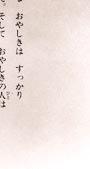 おやしきは すっかり
。そして おやしきの人は